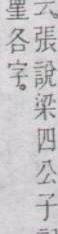 云張說梁四公子記
里各字。